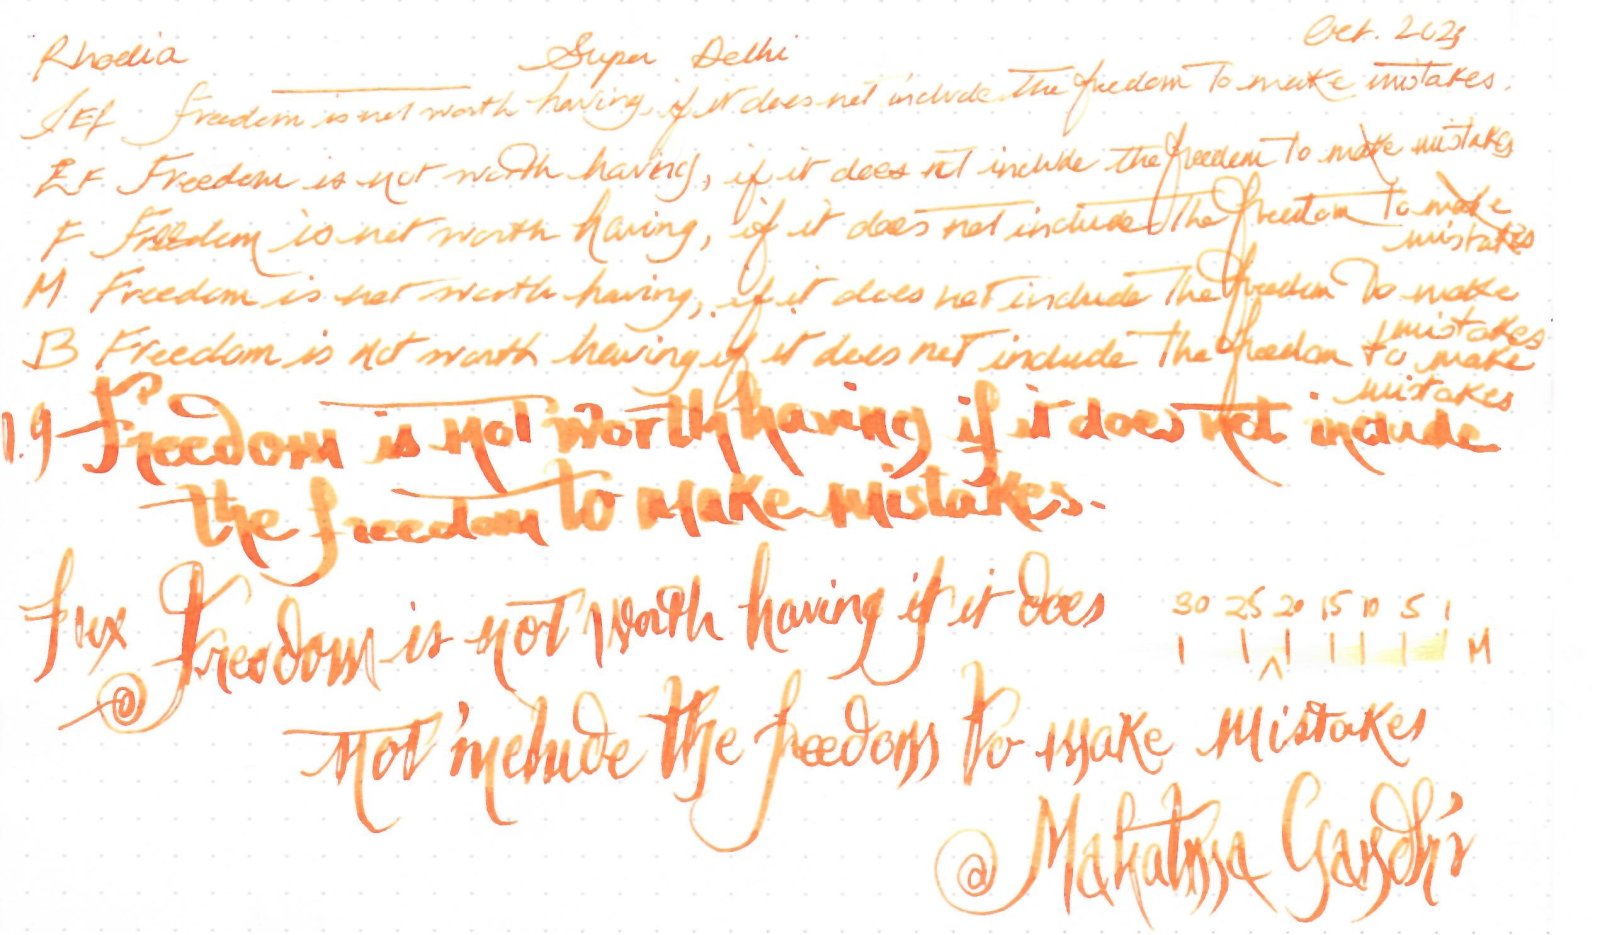 Rhodia Super Delhi Oct. 202
JEF Freedom is not worth having, if it does not include the freedom to make mistakes.
EF Freedom is not worth having, if it does not include the freedom to make mistakes
F Freedom is not worth having, if it does not include the freedom to make
mistakes
M Freedom is not worth having, if it does not include the freedom to make
mistakes
B Freedom is not worth having if it does not include the freedom to make
mistakes
1.9 Freedom is not worth having if it does not include
the freedom to make mistakes.
Fux Freedom is not worth having if it does
30 25 20 15 10 5 1
M
not include the freedom to make mistakes
@ Mahatma Gandhi